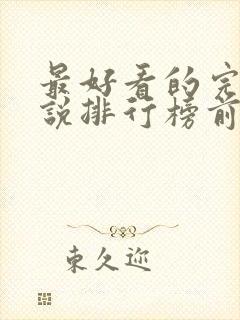 最好看的完
説排行榜前
東久迩